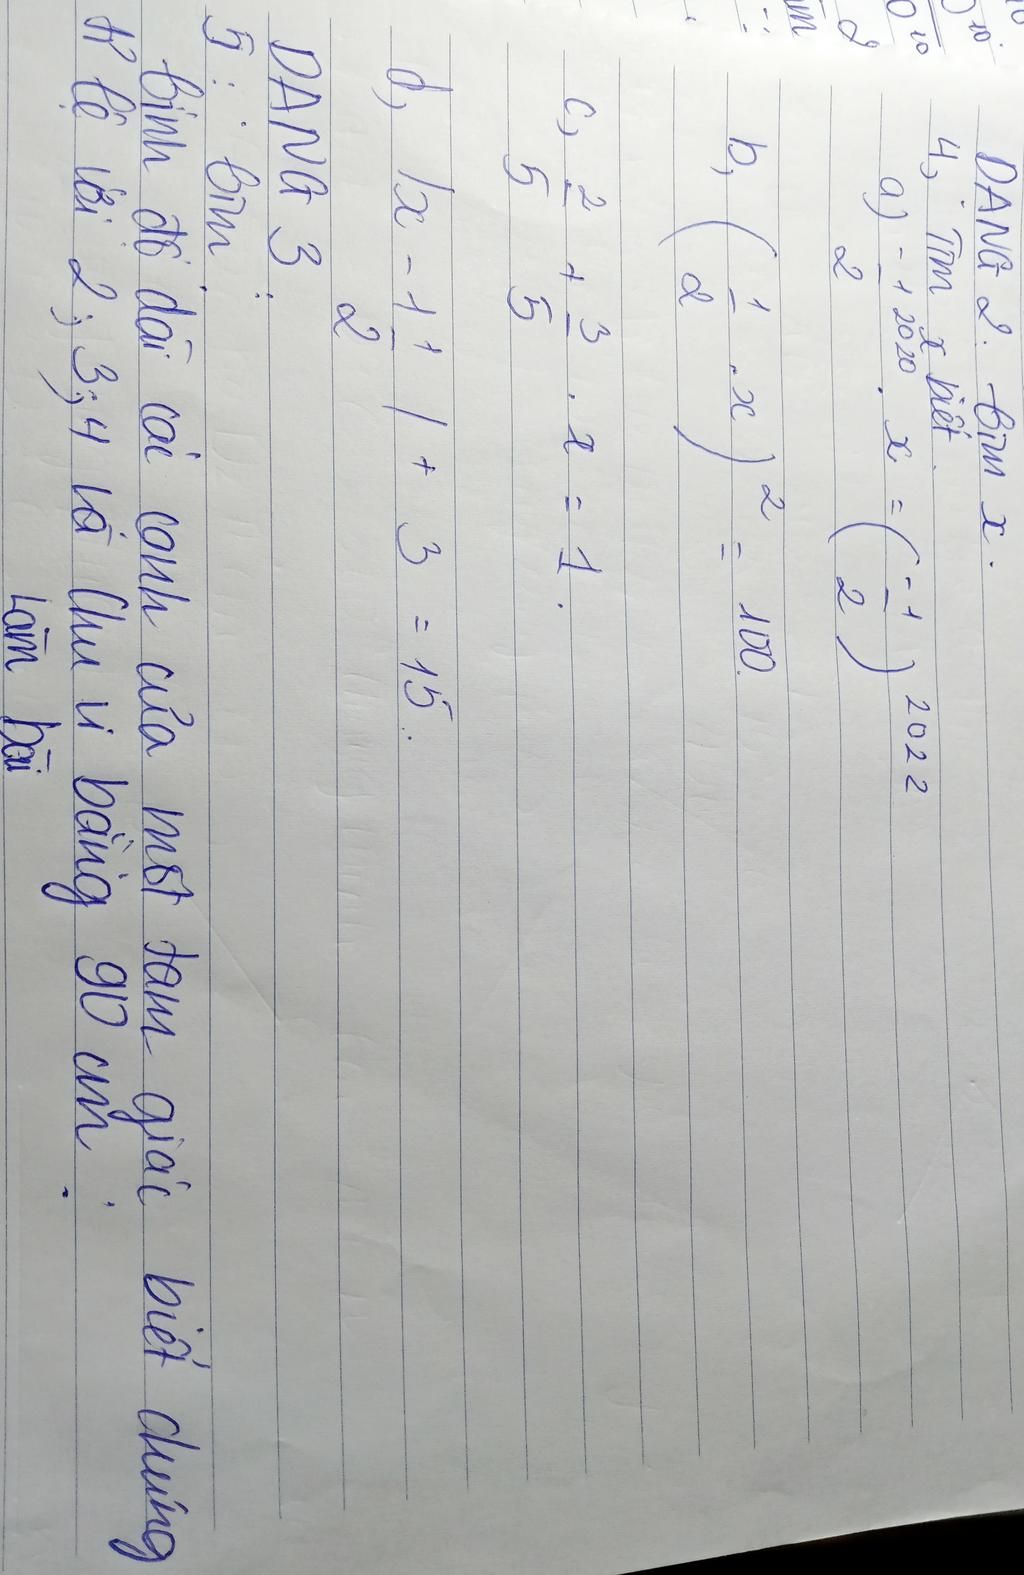 DẠNG 2. Tìm x.
4, Tìm x biết.
a) -1/2 ²⁰²⁰ . x = (-1/2) ²⁰²²
b, (1/2 . x)² = 100.
c, 2/5 + 3/5 . x = 1.
d, |x - 1 1/2| + 3 = 15.
DẠNG 3 :
5 : Tìm
Tính độ dài các cạnh của một tam giác biết chúng
tỉ lệ với 2; 3; 4 và Chu vi bằng 90 cm.
Làm bài